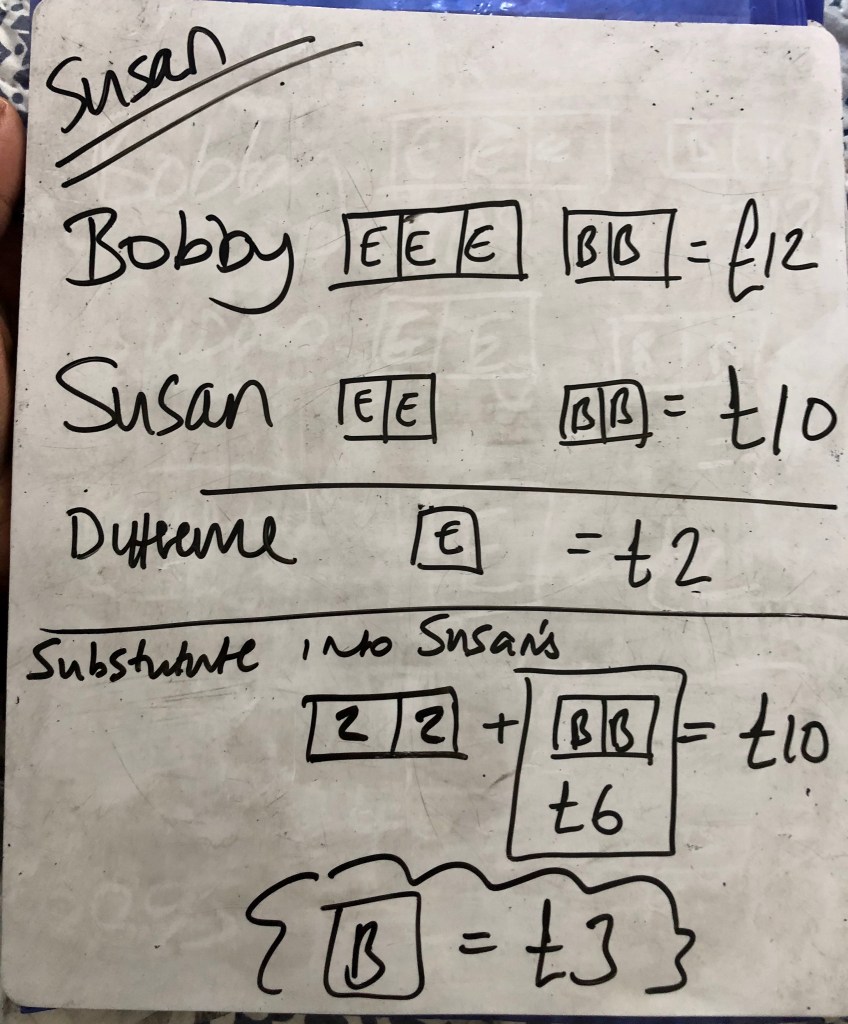 Susan
Bobby E E E B B = £12
Susan E E B B = £10
Difference E = £2
Substitute into Susan's
2 2 + B B = £10
£6
{ B = £3 }